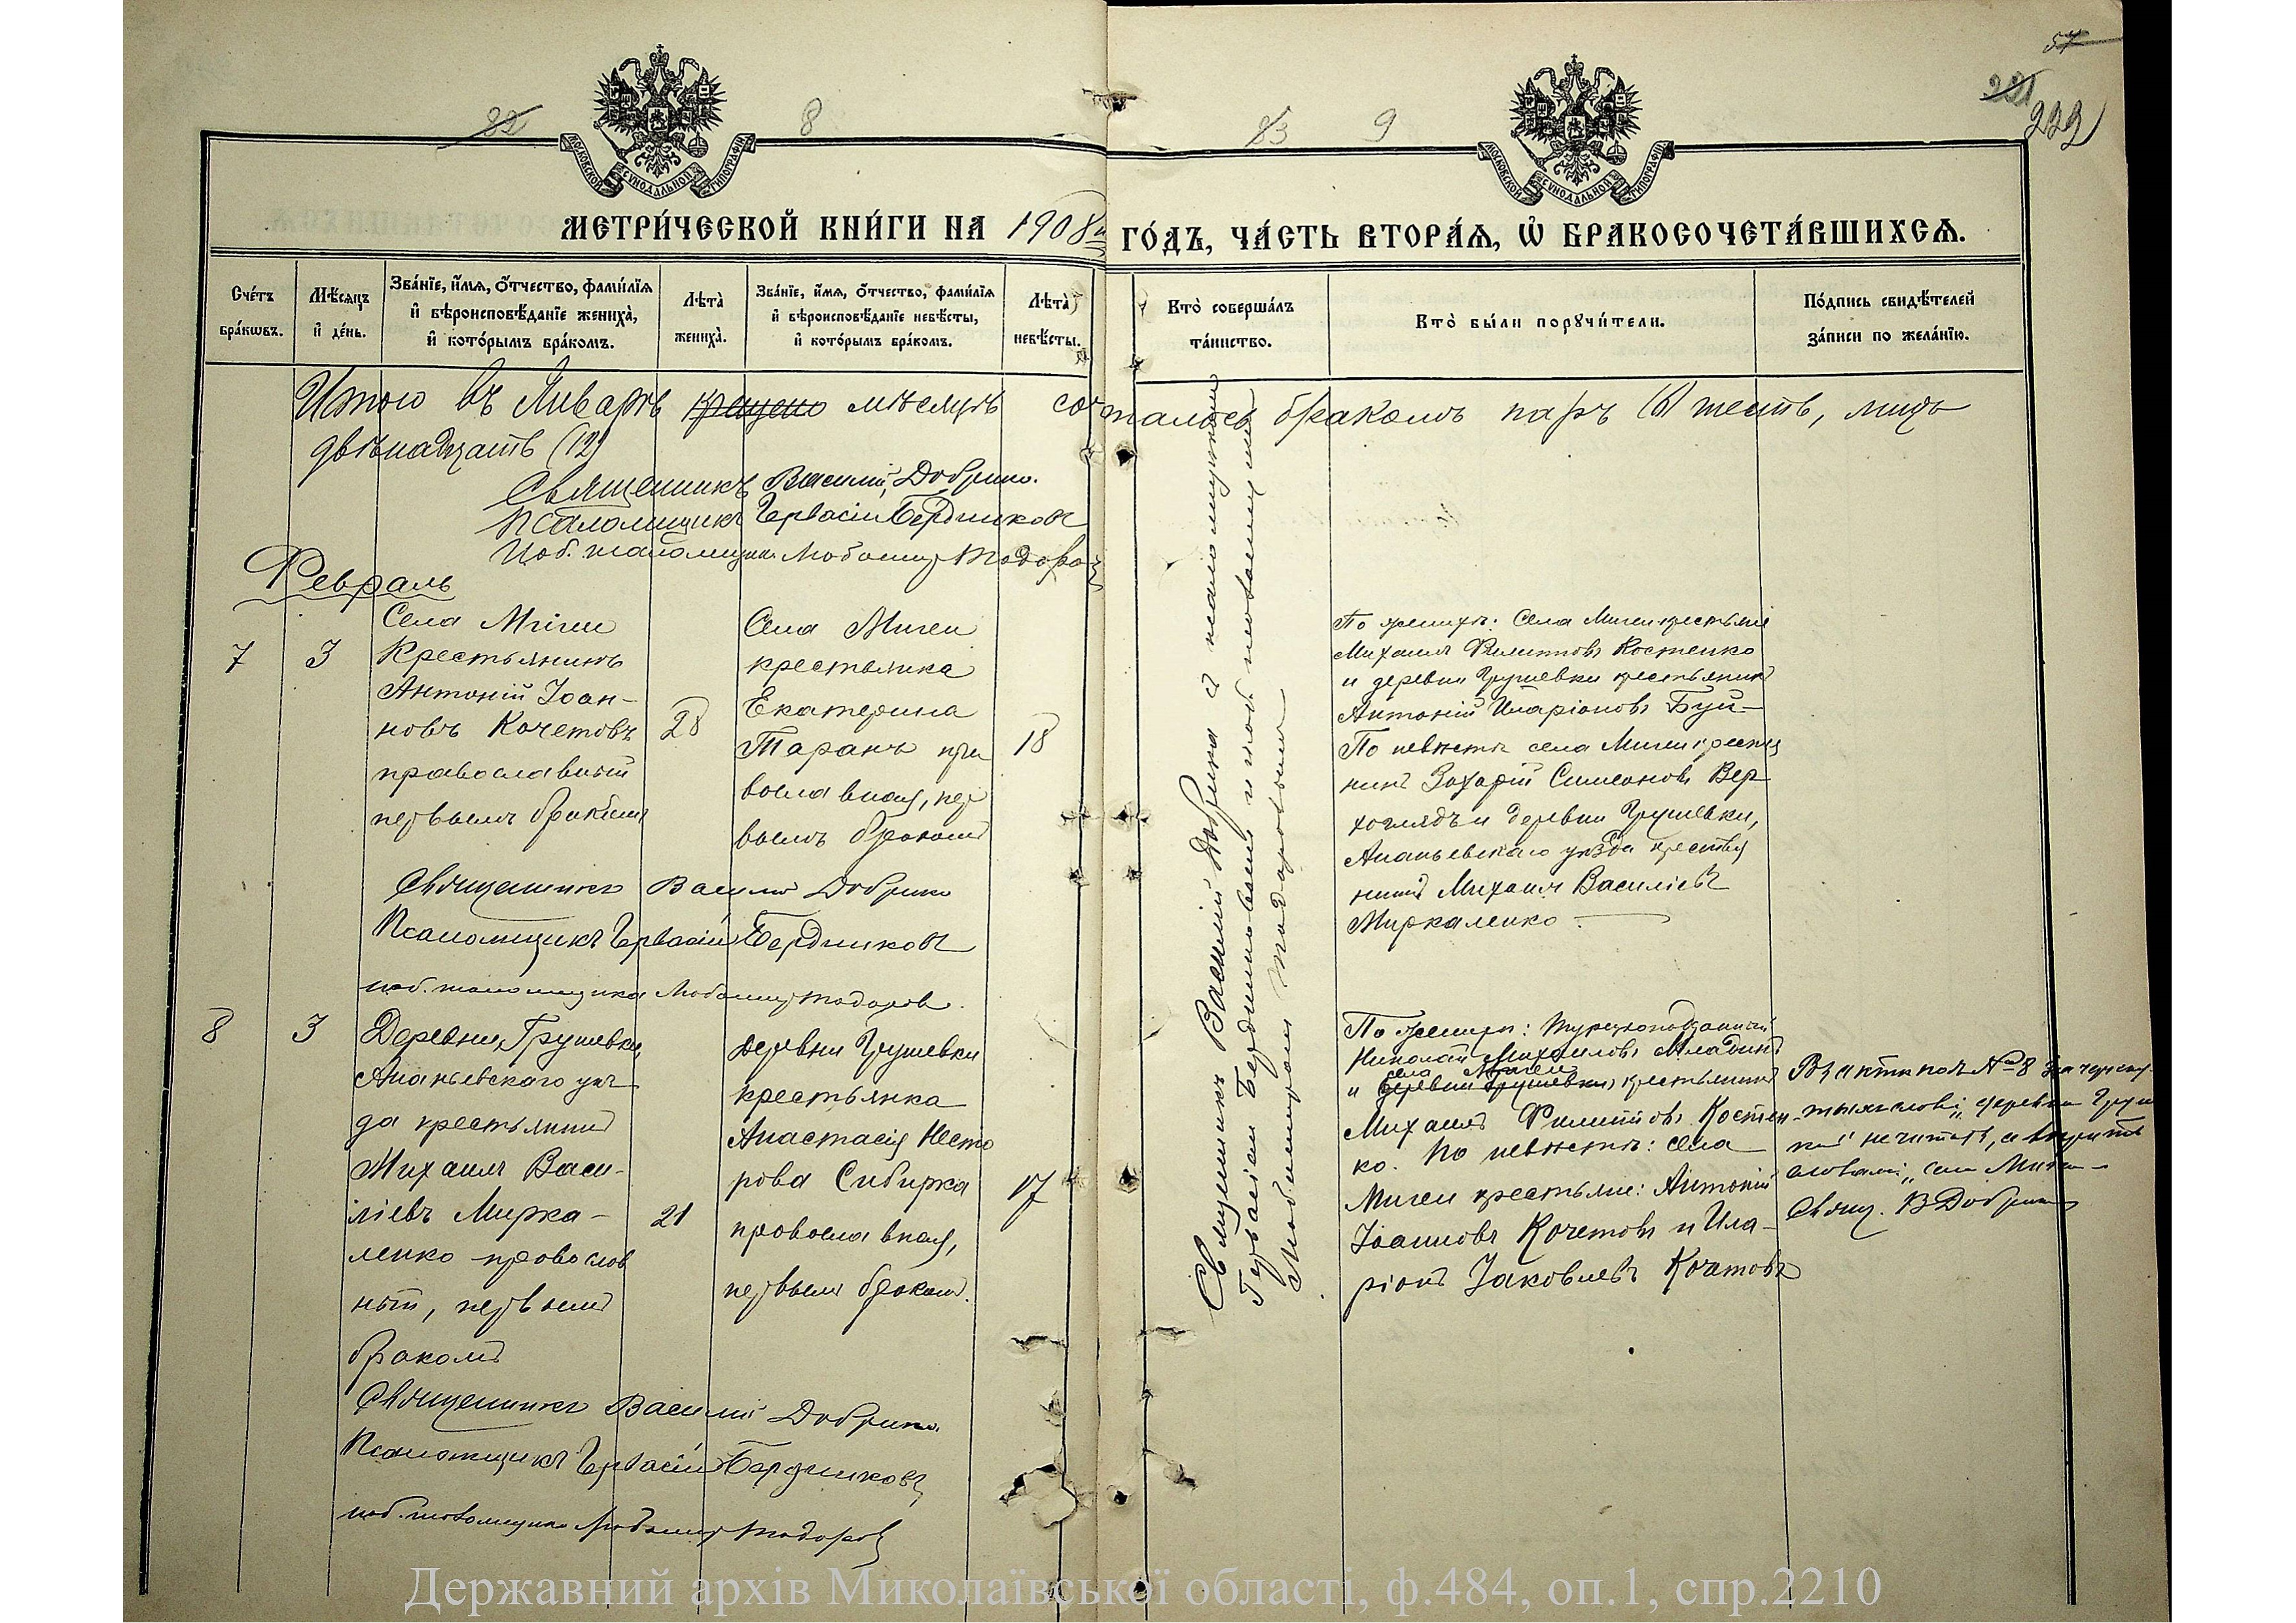 57
221
222
82
8
83
9
МОСКОВСКОЙ СѴНОДАЛЬНОЙ ТИПОГРАФІИ
МОСКОВСКОЙ СѴНОДАЛЬНОЙ ТИПОГРАФІИ
МЕТРИ́ЧЕСКОЙ КНИ́ГИ НА 1908й ГО́ДЪ, ЧА́СТЬ ВТОРА́Я, Ѽ БРАКОСОЧЕТА́ВШИХСЯ.
Сче́тъ
бра́кѡвъ.
Мѣ́сяцъ
и҆ де́нь.
Зва́нїе, и҆́мя, ѻ҆́тчество, фами́лїя
и҆ вѣроисповѣ́данїе жениха̀,
и҆ кото́рымъ бра́комъ.
Лѣта̀
жениха̀.
Зва́нїе, и҆́мя, ѻ҆́тчество, фами́лїя
и҆ вѣроисповѣ́данїе невѣ́сты,
и҆ кото́рымъ бра́комъ.
Лѣта̀
невѣ́сты.
Кто̀ соверша́лъ
та́инство.
Кто̀ бы́ли порꙋчи́тели.
По́дпись свидѣ́телей
за́писи по жела́нїю.
Итого въ Январѣ крещено мѣсяцѣ сочталось бракомъ паръ (6) шесть, лицъ
двѣнадцать (12)
Священникъ Василій Добрино.
Псаломщикъ Гервасій Бердниковъ
Исб. псаломщика Любомиръ Тодоровъ
Февраль
7
3
Села Мигеи
Крестьянинъ
Антоній Іоан-
новъ Кочетовъ
православный
первымъ бракомъ
28
Села Мигеи
крестьянка
Екатерина
Таранъ пра
вославная, пер
вымъ бракомъ
18
Священникъ Василій Добрина и псаломщики
Гервасій Бердниковъ и
Любомиръ Тодоровымъ
По женихѣ: Села Мигеи крестьяне
Михаилъ Филипповъ Костенко
и деревни Грушевки крестьянинъ
Антоній Иларіоновъ Буй-
По невѣстѣ села Мигеи крестья
нинъ Захарій Симеоновъ Вер-
хоглядъ и деревни Грушевки,
Ананьевскаго уѣзда крестья
нинъ Михаилъ Василіевъ
Миркаленко.
Священникъ Василій Добрино
Псаломщикъ Гервасій Бердниковъ
исб. псаломщика Любомиръ Тодоровъ.
8
3
Деревни Грушевки,
Ананьевскаго уѣз-
да крестьянинъ
Михаилъ Васи-
ліевъ Мирка-
ленко православ
ный, первымъ
бракомъ
21
Деревни Грушевки
крестьянка
Анастасія Несто
рова Сибирка
православная,
первымъ бракомъ.
17
По женихѣ: Турецкоподданный
Николай Михаиловъ Младинъ
села Мигеи
и деревни Грушевки крестьянинъ
Михаилъ Филипповъ Костен-
ко. По невѣстѣ: села
Мигеи крестьяне: Антоній
Іоанновъ Кочетовъ и Ила-
ріонъ Іаковлевъ Кочетовъ
Въ актѣ подъ № 8 зачеркну-
тыя слова „деревни Груш
не читать, а вѣрить
словамъ „села Мигеи-
Свящ. В Добрино
Священникъ Василій Добрино.
Псаломщикъ Гервасій Бердниковъ
исб. псаломщика Любомиръ Тодоровъ
Державний архів Миколаївської області, ф.484, оп.1, спр.2210